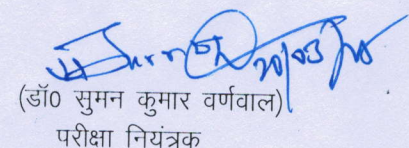 20/03/18
(डॉ0 सुमन कुमार वर्णवाल)
परीक्षा नियंत्रक